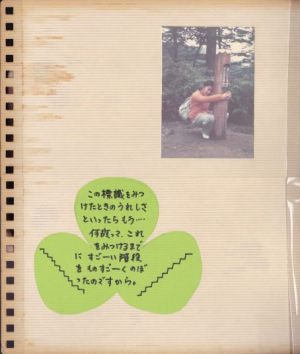 この標識をみつ
けたときのうれしさ
といったらもう‥‥
何故って、これ
をみつけるまで
に すごーい階段
を ものすごーくのぼ
ったのですから。